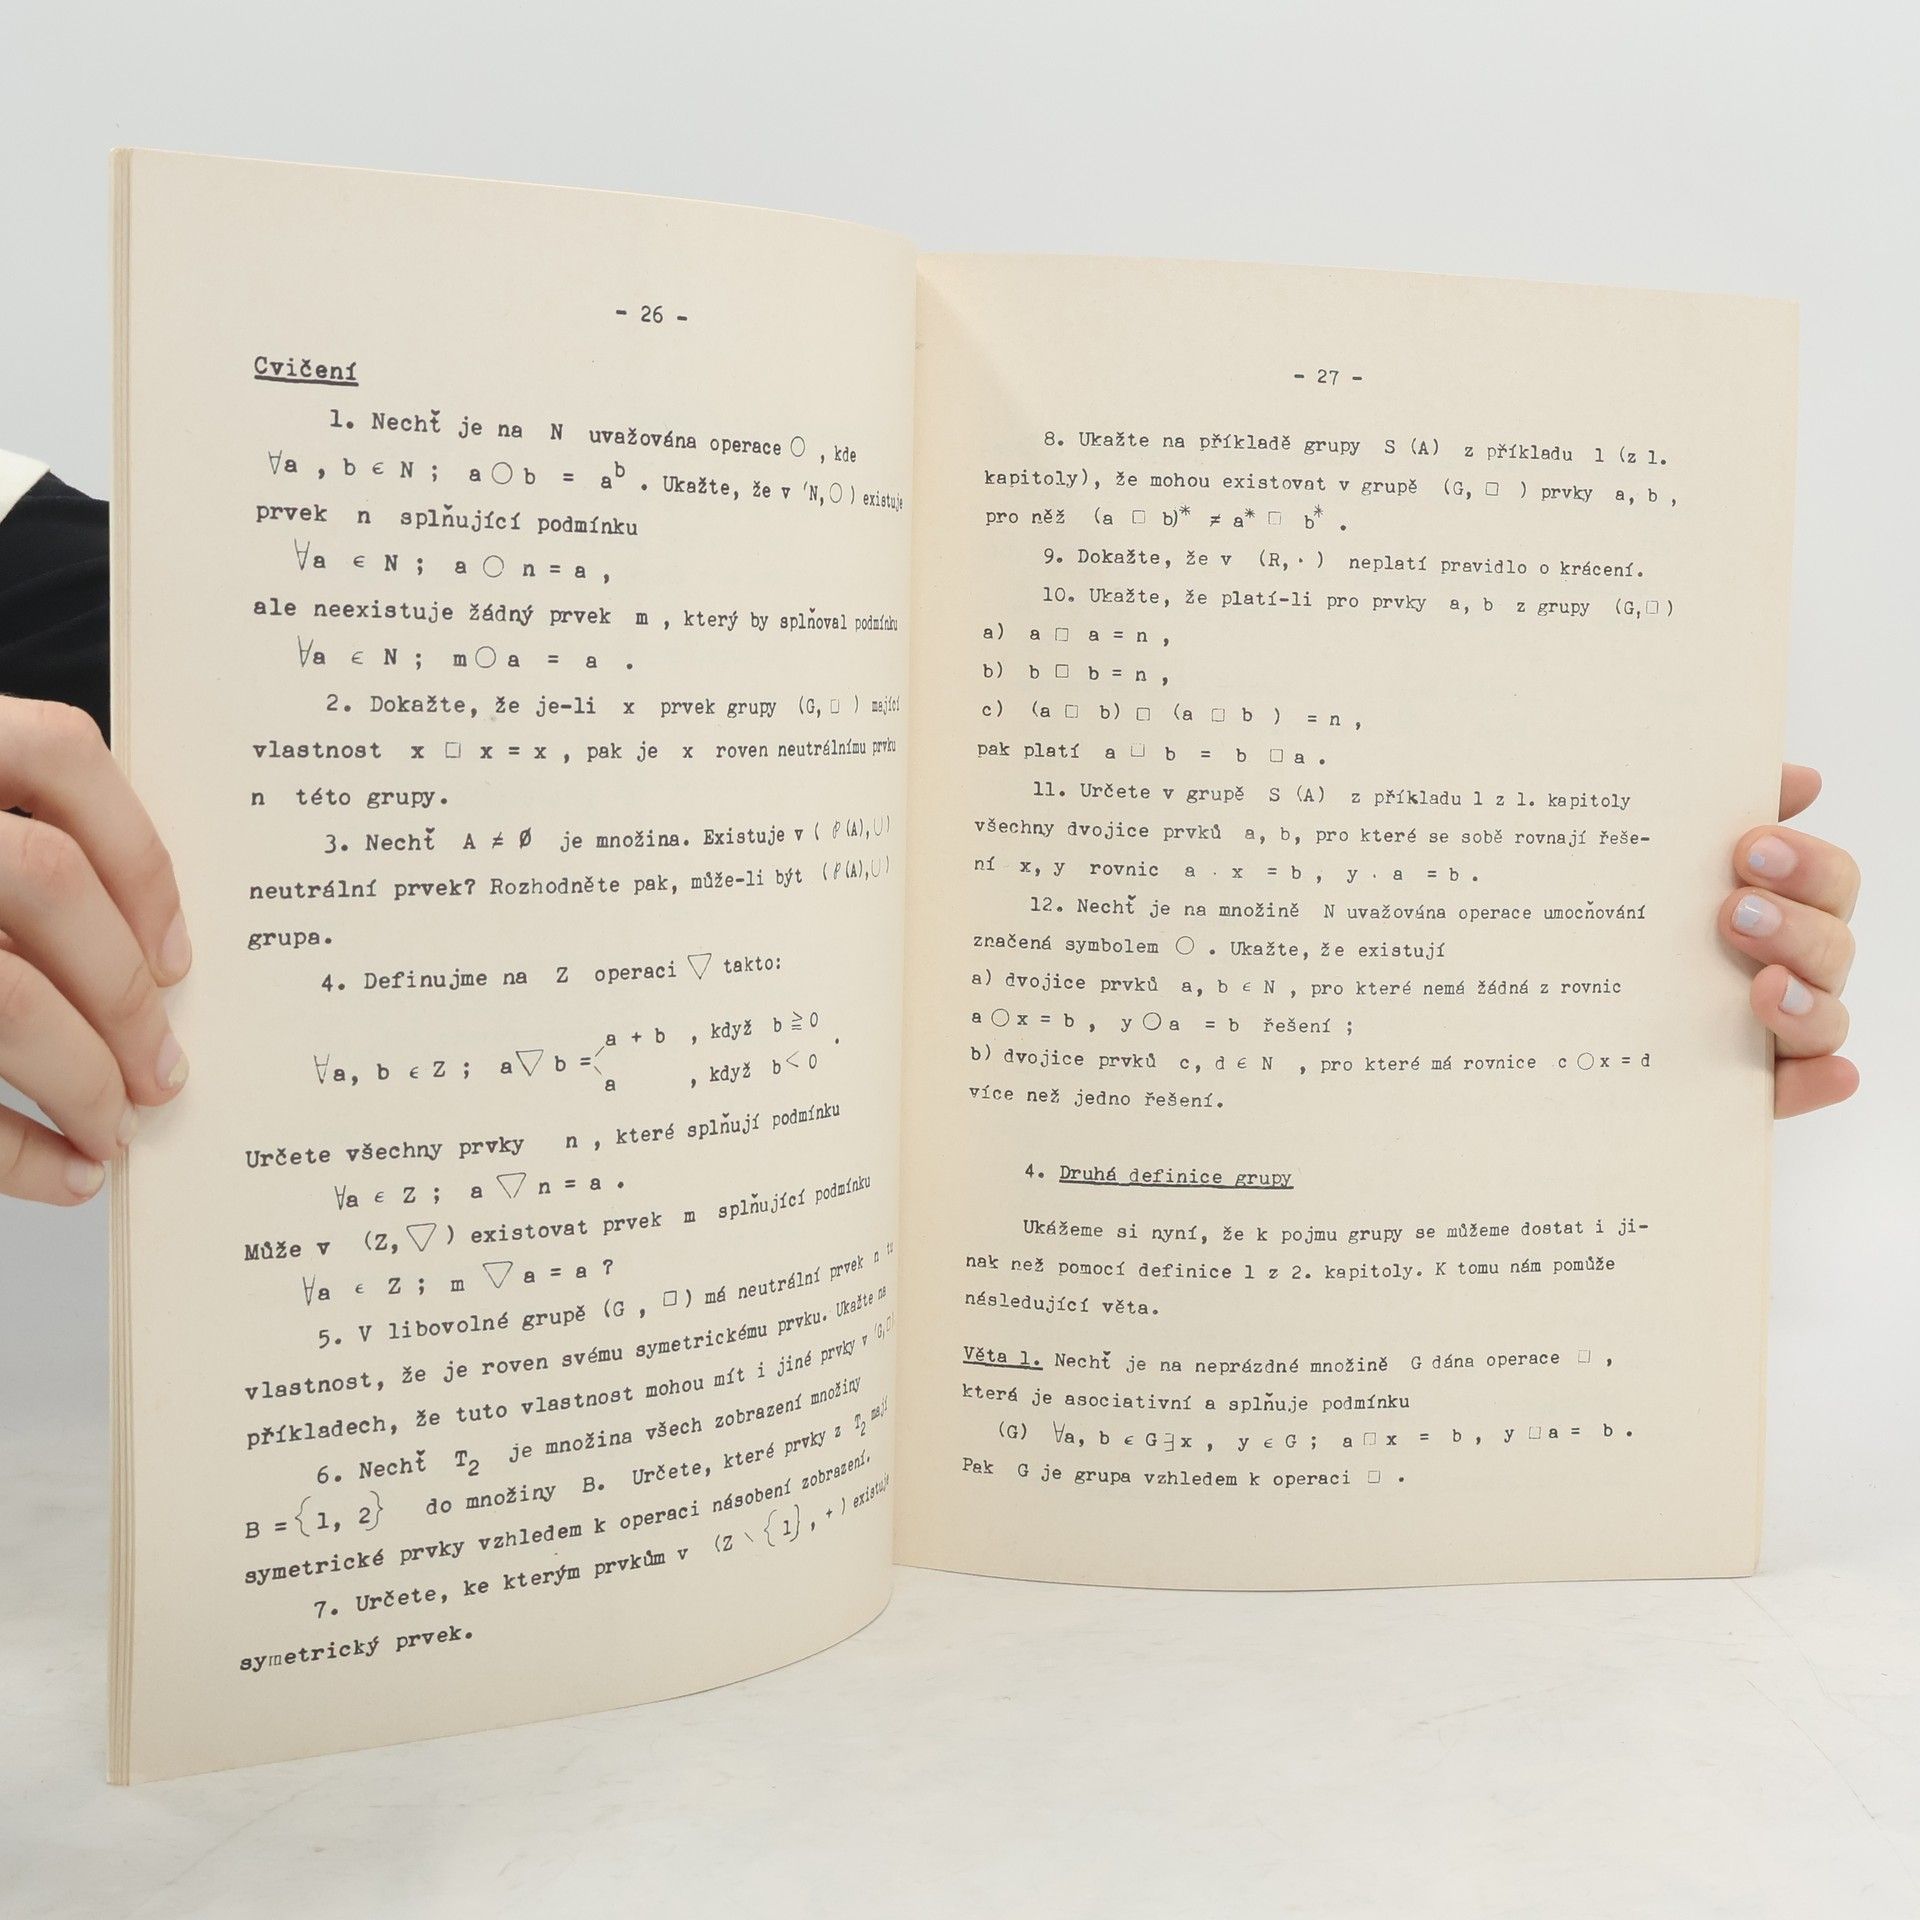 - 26 -
Cvičení
1. Nechť je na N uvažována operace ○ , kde
∀a , b ∈ N ; a ○ b = a^b . Ukažte, že v (N,○ ) existuje
prvek n splňující podmínku
∀a ∈ N ; a ○ n = a ,
ale neexistuje žádný prvek m , který by splňoval podmínku
∀a ∈ N ; m ○ a = a .
2. Dokažte, že je-li x prvek grupy (G, □ ) mající
vlastnost x □ x = x , pak je x roven neutrálnímu prvku
n této grupy.
3. Nechť A ≠ Ø je množina. Existuje v ( 𝒫(A),∪)
neutrální prvek? Rozhodněte pak, může-li být (𝒫(A),∪)
grupa.
4. Definujme na Z operaci ▽ takto:
a + b , když b ≧ 0
∀a, b ∈ Z ; a ▽ b = .
a , když b < 0
Určete všechny prvky n , které splňují podmínku
∀a ∈ Z ; a ▽ n = a .
Může v (Z,▽ ) existovat prvek m splňující podmínku
∀a ∈ Z ; m ▽ a = a ?
5. V libovolné grupě (G , □) má neutrální prvek n tu
vlastnost, že je roven svému symetrickému prvku. Ukažte na
příkladech, že tuto vlastnost mohou mít i jiné prvky v (G,□)
6. Nechť T₂ je množina všech zobrazení množiny
B = {1, 2} do množiny B. Určete, které prvky z T₂ mají
symetrické prvky vzhledem k operaci násobení zobrazení.
7. Určete, ke kterým prvkům v (Z ∖ {1}, + ) existuje
symetrický prvek.
- 27 -
8. Ukažte na příkladě grupy S (A) z příkladu 1 (z 1.
kapitoly), že mohou existovat v grupě (G, □ ) prvky a, b ,
pro něž (a □ b)* ≠ a* □ b* .
9. Dokažte, že v (R, · ) neplatí pravidlo o krácení.
10. Ukažte, že platí-li pro prvky a, b z grupy (G,□ )
a) a □ a = n ,
b) b □ b = n ,
c) (a □ b) □ (a □ b ) = n ,
pak platí a □ b = b □ a .
11. Určete v grupě S (A) z příkladu 1 z 1. kapitoly
všechny dvojice prvků a, b, pro které se sobě rovnají řeše-
ní x, y rovnic a · x = b , y · a = b .
12. Nechť je na množině N uvažována operace umocňování
značená symbolem ○ . Ukažte, že existují
a) dvojice prvků a, b ∈ N , pro které nemá žádná z rovnic
a ○ x = b , y ○ a = b řešení ;
b) dvojice prvků c, d ∈ N , pro které má rovnice c ○ x = d
více než jedno řešení.
4. Druhá definice grupy
Ukážeme si nyní, že k pojmu grupy se můžeme dostat i ji-
nak než pomocí definice 1 z 2. kapitoly. K tomu nám pomůže
následující věta.
Věta 1. Nechť je na neprázdné množině G dána operace □ ,
která je asociativní a splňuje podmínku
(G) ∀a, b ∈ G ∃ x , y ∈ G ; a □ x = b , y □ a = b .
Pak G je grupa vzhledem k operaci □ .